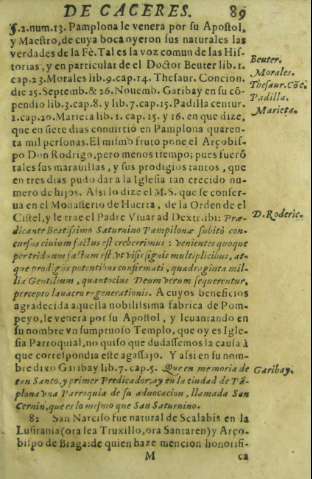 DE CACERES. 89
§.2.num.13. Pamplona le venera por su Apostol,
y Maestro, de cuya boca oyeron sus naturales las
verdades de la Fè. Tal es la voz comun de las His-
torias, y en particular de el Doctor Beuter lib. 1.
cap.23. Morales lib.9.cap.14. Thesaur. Concion.
die 25. Septemb.& 26. Nouemb. Garibay en su cõ-
pendio lib.3.cap.8. y lib.7.cap.15. Padilla centur.
1.cap.20. Marieta lib.1. cap. 15. y 16. en que dize,
que en siete dias conuirtiò en Pamplona quaren-
ta mil personas. El mismo fruto pone el Arçobis-
po Don Rodrigo, pero menos tiempo; pues fuerõ
tales sus marauillas, y sus prodigios tantos, que
en tres dias pudo dar a la Iglesia tan crecido nu-
mero de hijos. Assi lo dize el M.S. que se conser-
ua en el Monasterio de Huerta, de la Orden de el
Cistel, y le trae el Padre Viuar ad Dext. ibi: Præ-
dicante Beatissimo Saturnino Pampilonæ subitò con-
cursus ciuium factus est creberrimus: venientes quoque
per triduum factum est, vt visis signis multiplicibus, at-
que prodigijs potentius confirmati, quadraginta mil-
lia Gentilium, quantocius Deum verum sequerentur,
percepto lauacro regenerationis. A cuyos beneficios
agradecida aquella nobilissima fabrica de Pom-
peyo, le venera por su Apostol, y leuantando en
su nombre vn sumptuoso Templo, que oy es Igle-
sia Parroquial, no quiso que dudassemos la causa à
que correspondia este agassajo. Y assi en su nom-
bre dixo Garibay lib.7. cap.5. Que en memoria de
tan Santo, y primer Predicador, ay en la ciudad de Pã-
plona vna Parroquia de su aduocacion, llamada San
Cernin, que es lo mismo que San Saturnino.
82 San Narciso fue natural de Scalabis en la
Lusitania (ora sea Truxillo, ora Santaren) y Arço-
bispo de Braga: de quien haze mencion honorifi-
M ca
Beuter.
Morales.
Thesaur. Cõc.
Padilla.
Marieta.
D. Roderic.
Garibay.